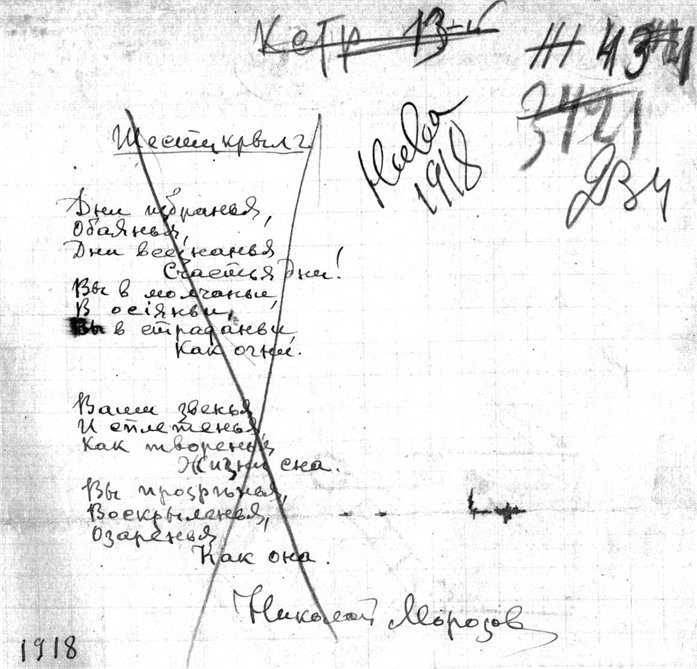 Кегр 13-й
Нива
1918
3421
234
Шестикрылъ.
Дни избранья,
Обаянья,
Дни все
Счастья дни!
Вы в молчаньи,
В осіяньи,
Вы в страданьи
Как огни.
Ваши звенья
И сплетенья
Как творенья
Жизни сна.
Вы прозрѣнья,
Воскрыленья,
Озаренья
Как она.
Николай Морозов
1918